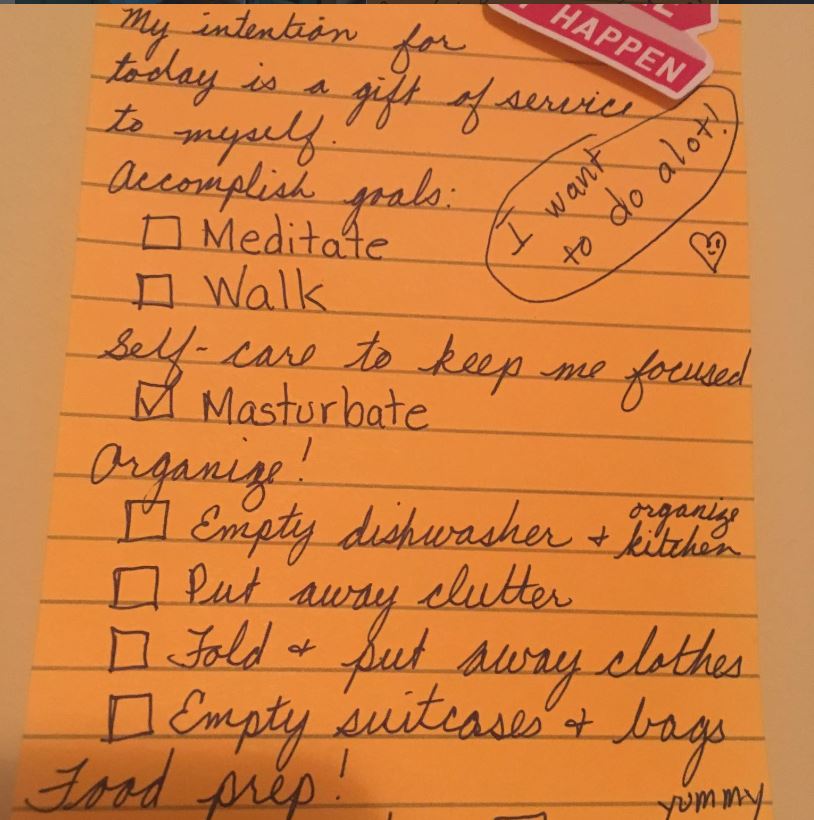 HAPPEN
My intention for
today is a gift of service
to myself.
I want
to do alot!
Accomplish goals:
Meditate
Walk
Self-care to keep me focused
Masturbate
Organize!
Empty dishwasher + organize
kitchen
Put away clutter
Fold + put away clothes
Empty suitcases + bags
Food prep!
yummy